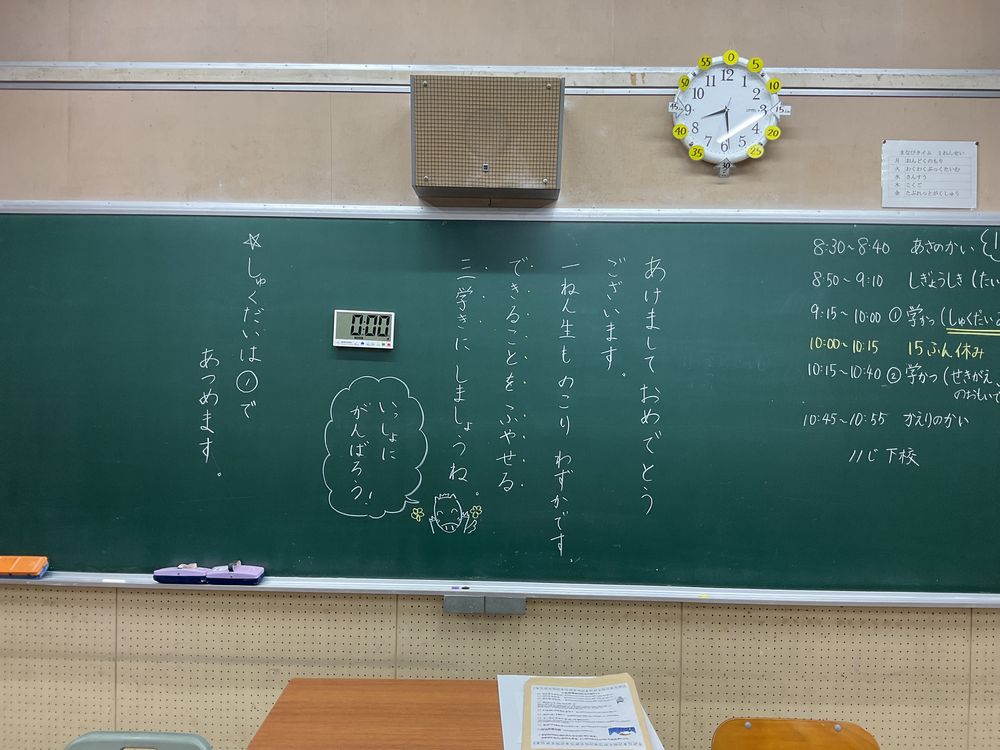 あけまして おめでとう
ございます。
一ねん生も のこり わずかです。
できることを ふやせる
三学きに しましょうね。
いっしょに
がんばろう!
☆しゅくだいは①で
あつめます。
0:00
8:30~8:40 あさのかい
8:50~9:10 しぎょうしき(たい
9:15~10:00 ①学かつ(しゅくだい
10:00~10:15 15ふん休み
10:15~10:40 ②学かつ(せきがえ、
のおもいで
10:45~10:55 かえりのかい
11じ下校
まなびタイム 1ねんせい
月 おんどくのもり
火 わくわくぶっくたいむ
水 さんすう
木 こくご
金 たぶれっとがくしゅう
0 5 10 15 20 25 30 35 40 45 50 55
12 1 2 3 4 5 6 7 8 9 10 11